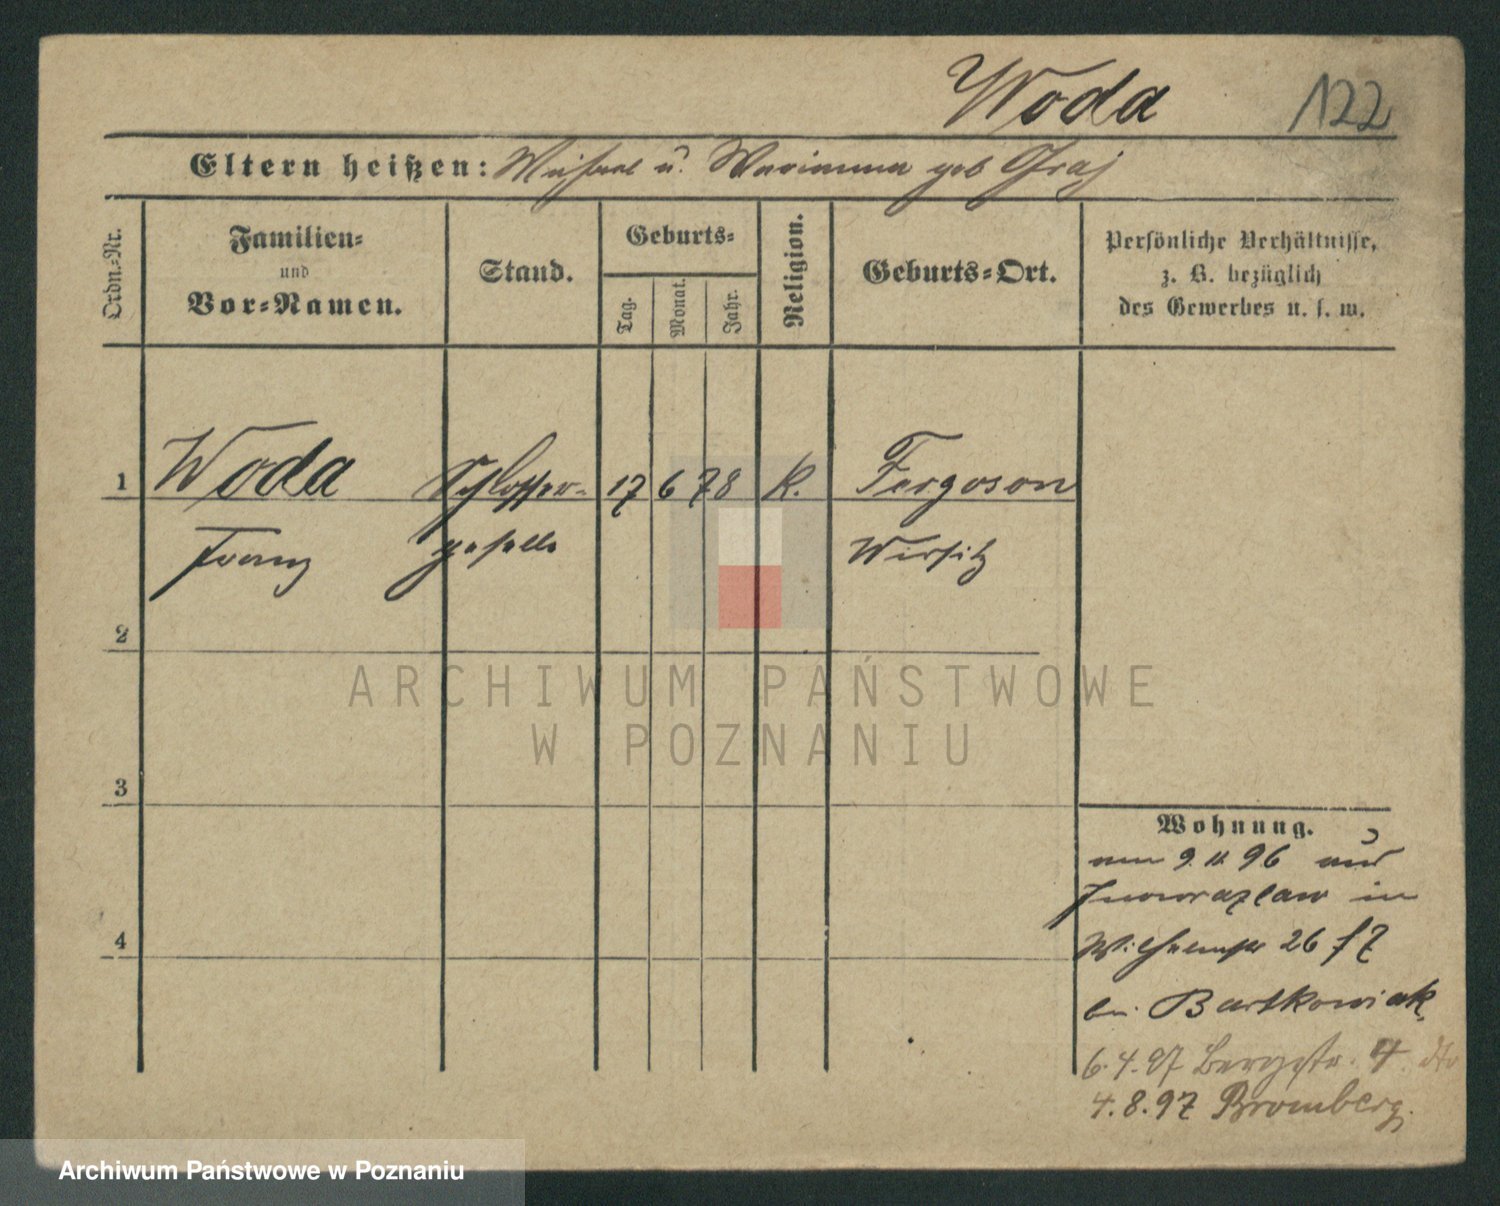 Woda 122
Eltern heißen: Michael u. Marianna geb Graj
Ordn.-Nr.
Familien-
und
Vor-Namen.
Stand.
Geburts-
Tag.
Monat.
Jahr.
Religion.
Geburts-Ort.
Persönliche Verhältnisse,
z. B. bezüglich
des Gewerbes u. s. w.
1 Woda Schlosser- 17 6 78 K. Fergoson
Franz geselle Wirsitz
2
3
4
Wohnung.
am 9. 11. 96 aus
Inowrazlaw in
Wilhelmstr 26
bei Bartkowiak
6.4.97 Bergstr. 4. dto
4.8.97 Bromberg.
ARCHIWUM PAŃSTWOWE
W POZNANIU
Archiwum Państwowe w Poznaniu